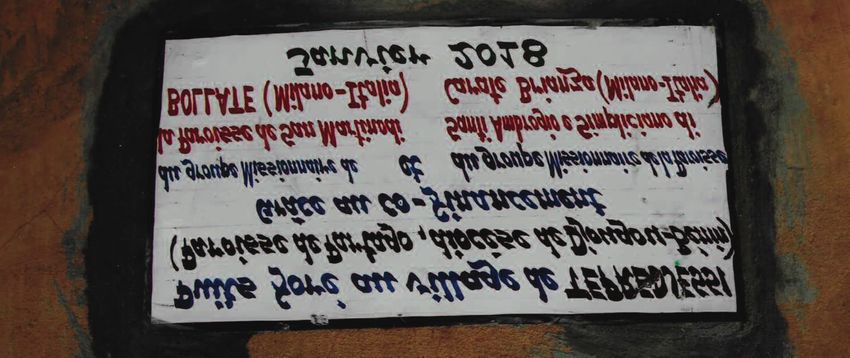 Puits foré au village de TEPREDJESSI
(Paroisse de Partago, diocèse de Djougou-Bénin)
Grâce au co-financement
du groupe Missionnaire de et du groupe Missionnaire de la Paroisse
la Paroisse de San Martino di Santi Ambrogio e Simpliciano di
BOLLATE (Milano-Italia) Carate Brianza (Milano-Italia)
Janvier 2018